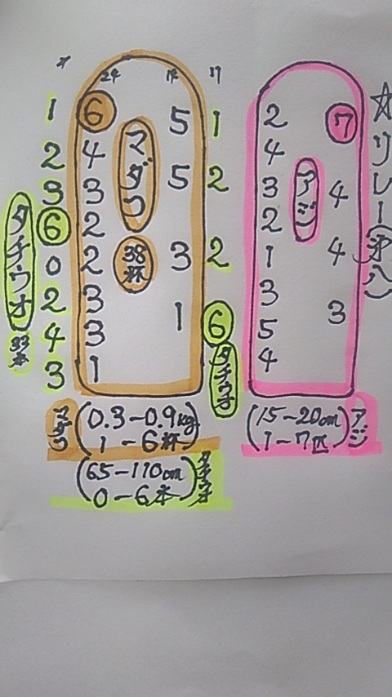 ☆リレー
24 14
1 6 5 1
2 4 マダコ 5 2
3 3
6 2
0 2 38杯 3 2
2 3
4 3 1 6
3 1
タチウオ
33本
タチウオ
2 7
4
3 アジ 4
2
1 4
3
5 3
4
マダコ (0.3-0.9kg
1-6杯)
(65-110cm
0-6本) タチウオ
(15-20cm
1-7匹) アジ